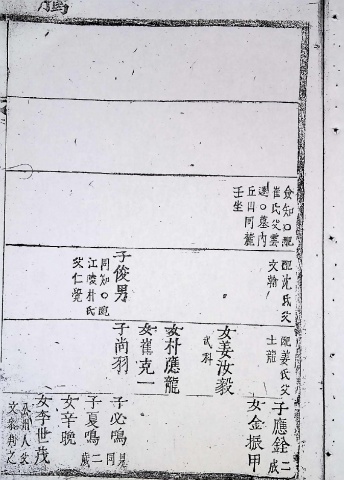 僉知○配
崔氏父雲
遂○墓內
丘山同麓
壬坐
配沈氏父
文翰
子俊男
同知○配
江陵朴氏
父仁覺
配姜氏父
士龍
女姜汝毅
武科
女朴應龍
女崔克一
子尚羽
子應銓
二歲
女金振甲
子必鳴
見同
子夏鳴
二歲
女辛晩
女李世茂